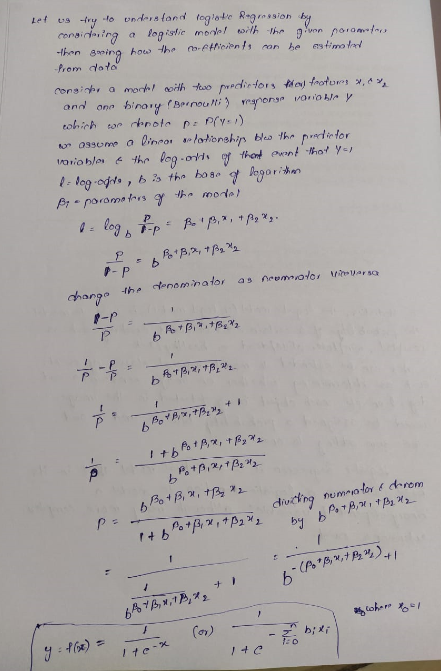 Let us try to understand logistic Regression by
considering a logistic model with the given parameters
then seeing how the co-efficients can be estimated
from data
consider a model with two predictors features x₁ & x₂
and one binary (Bernoulli) response variable y
which we denote p = P(y=1)
we assume a linear relationship b/w the predictor
variables & the log-odds of that event that y=1
l = log-odds, b is the base of logarithm
βᵢ = parameters of the model
l = log_b p/(1-p) = β₀ + β₁x₁ + β₂x₂.
p/(1-p) = b^(β₀+β₁x₁+β₂x₂)
change the denominator as neumerator viceversa
(1-p)/p = 1/b^(β₀+β₁x₁+β₂x₂)
1/p - p/p = 1/b^(β₀+β₁x₁+β₂x₂)
1/p = 1/b^(β₀+β₁x₁+β₂x₂) + 1
1/p = (1+b^(β₀+β₁x₁+β₂x₂))/b^(β₀+β₁x₁+β₂x₂)
p = b^(β₀+β₁x₁+β₂x₂)/(1+b^(β₀+β₁x₁+β₂x₂)) dividing numerator & denom
by b^(β₀+β₁x₁+β₂x₂)
= 1/(1/b^(β₀+β₁x₁+β₂x₂) + 1) = 1/(b^-(β₀+β₁x₁+β₂x₂) + 1)
where x₀=1
y = f(x) = 1/(1+e^-x) (or) 1/(1+e^(-Σ_{i=0}^{n} bᵢxᵢ))